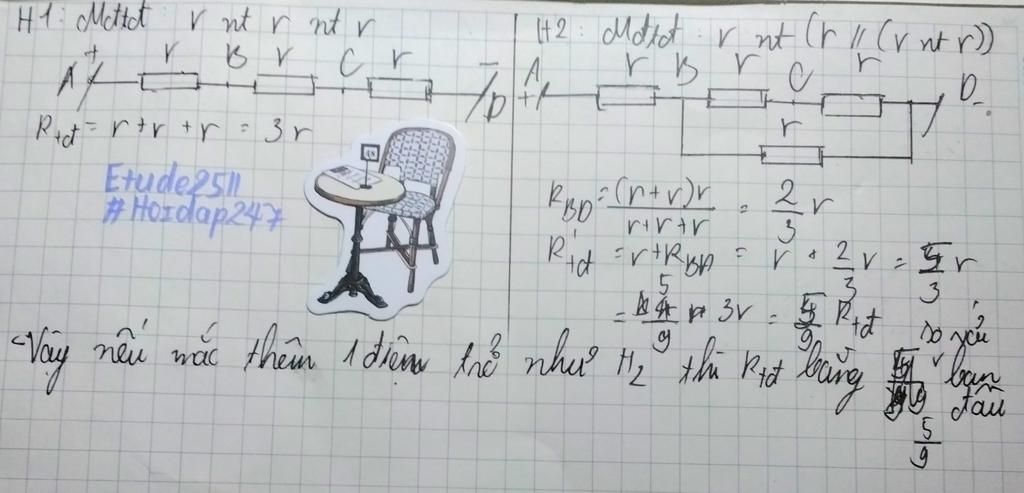 H1: Mđtđ: r nt r nt r
A + r B r C r - D
Rtđ = r + r + r = 3r
Etude2511
#Hoidap247
H2: Mđtđ: r nt (r // (r nt r))
A + r B r C r D -
r
RBD = (r+r)r / r+r+r = 2/3 r
R'tđ = r + RBD = r + 2/3 r = 5/3 r
= 5/9 3r = 5/9 Rtđ
Vậy nếu mắc thêm 1 điện trở như H2 thì Rtđ bằng so với ban đầu
5/9